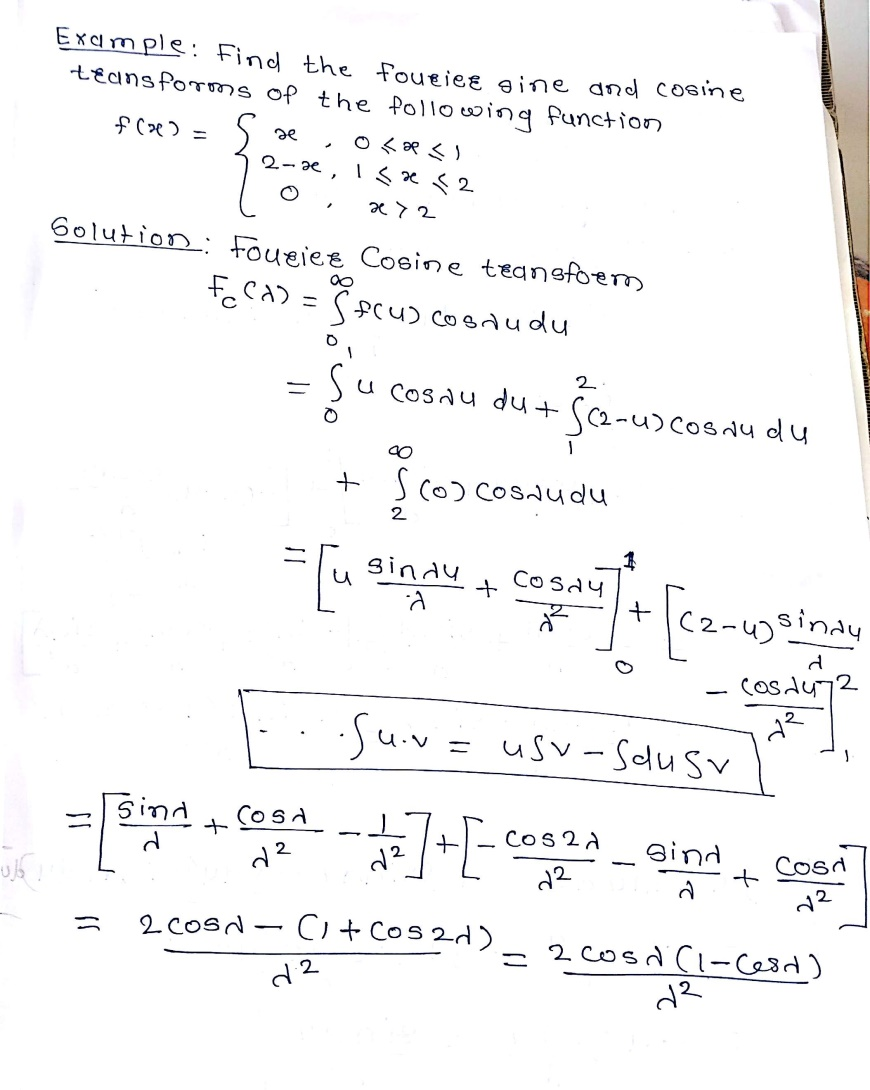 Example: Find the fourier sine and cosine
transforms of the following function
f(x) = { x , 0 ≤ x ≤ 1
2-x, 1 ≤ x ≤ 2
0 , x > 2
Solution: Fourier Cosine transform
F_c(λ) = ∫_0^∞ f(u) cosλu du
= ∫_0^1 u cosλu du + ∫_1^2 (2-u) cosλu du
+ ∫_2^∞ (0) cosλu du
= [u sinλu/λ + cosλu/λ²]_0^1 + [(2-u) sinλu/λ
- cosλu/λ²]_1^2
... ∫u.v = u∫v - ∫du∫v
= [sinλ/λ + cosλ/λ² - 1/λ²] + [-cos2λ/λ² - sinλ/λ + cosλ/λ²]
= 2cosλ - (1 + cos2λ)/λ² = 2cosλ(1-cosλ)/λ²